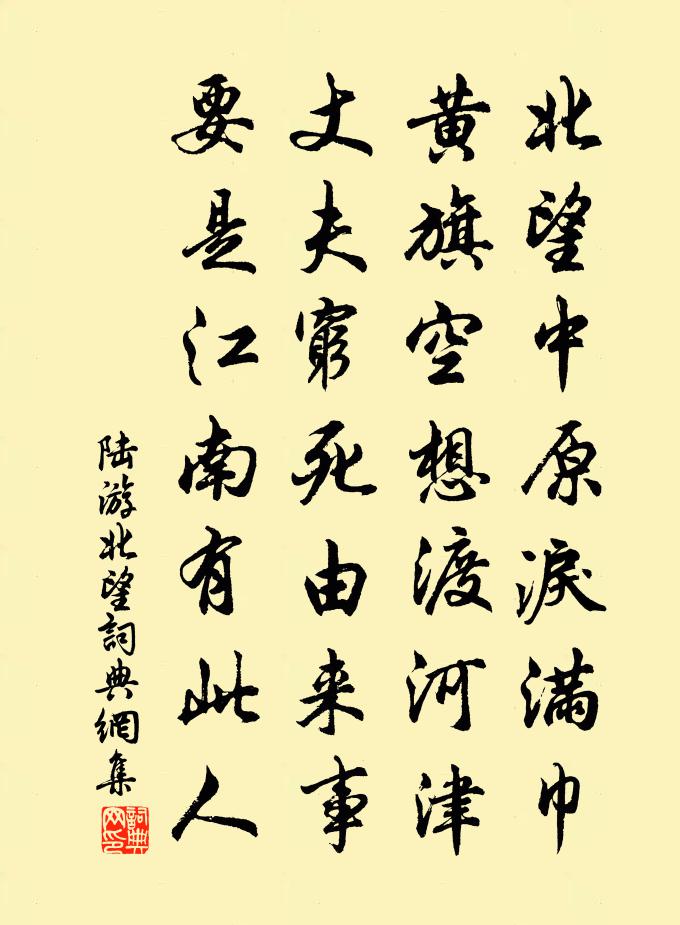 北望中原淚滿巾
黄旗空想渡河津
丈夫窮死由来事
要是江南有此人
陆游北望詞典網集
詞典网印